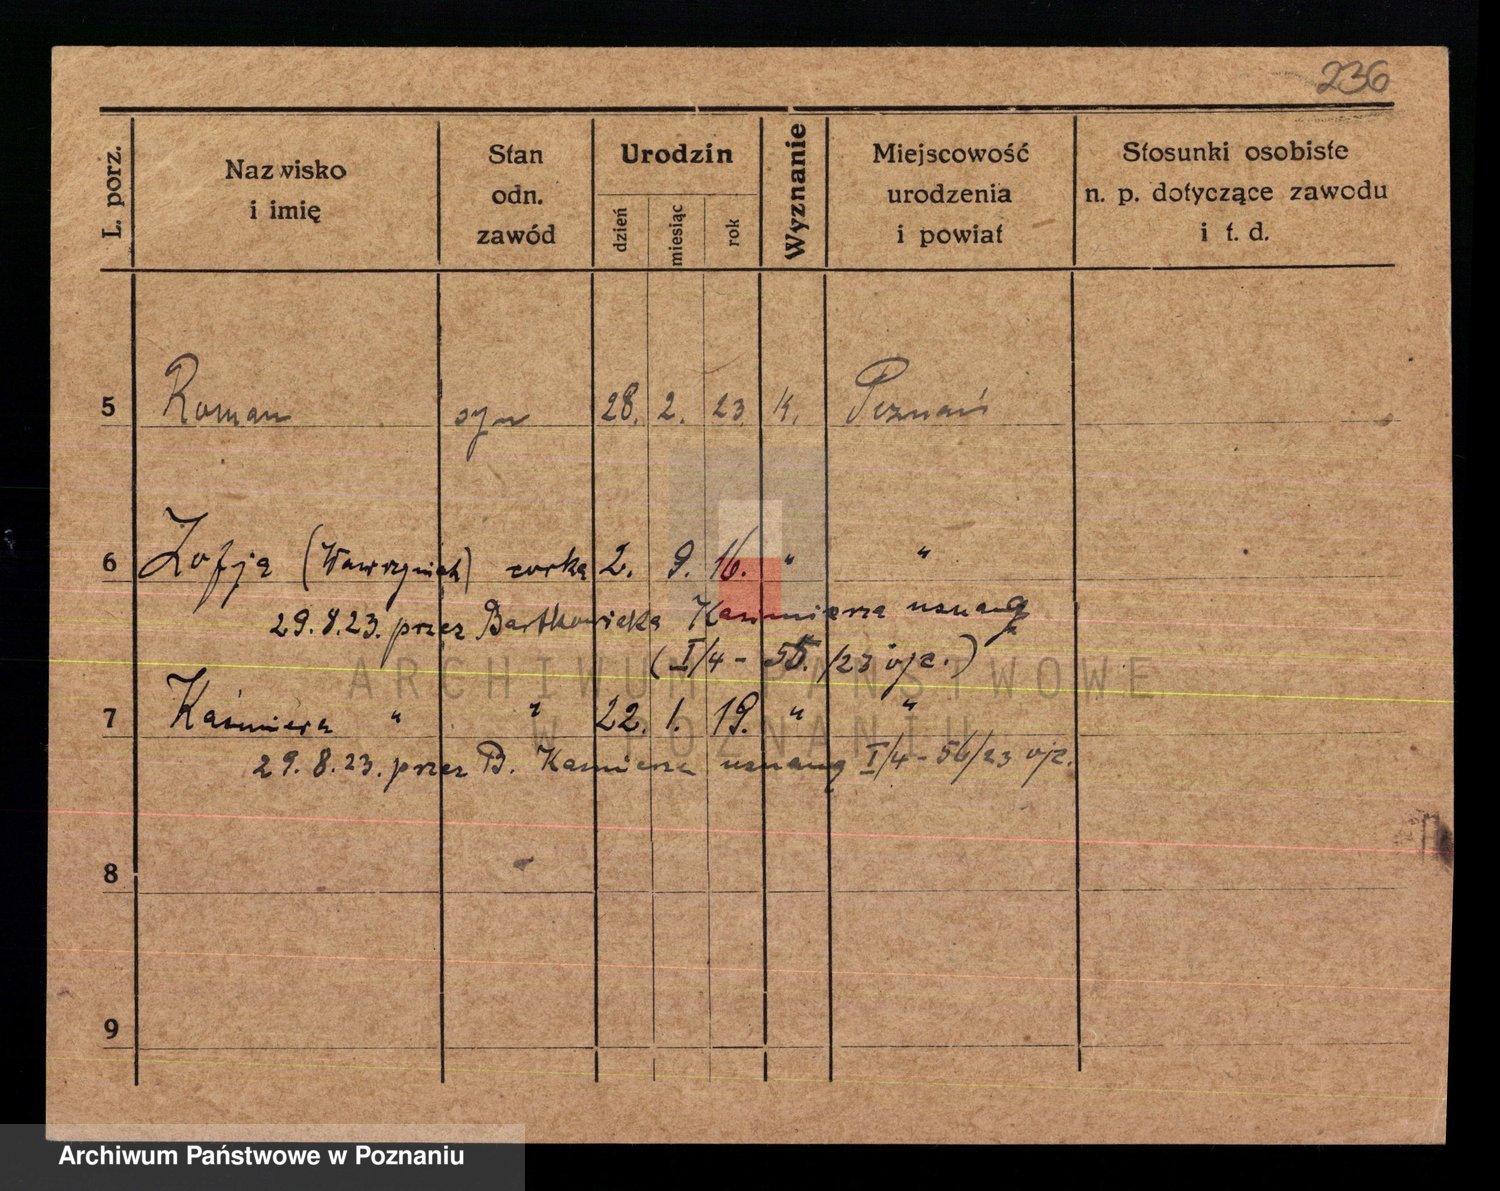 236
L. porz.
Nazwisko
i imię
Stan
odn.
zawód
Urodzin
dzień
miesiąc
rok
Wyznanie
Miejscowość
urodzenia
i powiat
Stosunki osobiste
n. p. dotyczące zawodu
i t. d.
5 Roman syn 28. 2. 23. k. Poznań
6 Zofja (Wawrzyniak) corka 2. 9. 16. " "
29.8.23. przez Bartkowiaka Kazimierza uznaną
(I/4 - 55. /23 ojc.)
7 Kaźmiera " " 22. 1. 19. " "
29.8.23. przez B. Kazmierza uznaną I/4 - 56/23 ojc.
8
9
ARCHIWUM PAŃSTWOWE
W POZNANIU
Archiwum Państwowe w Poznaniu